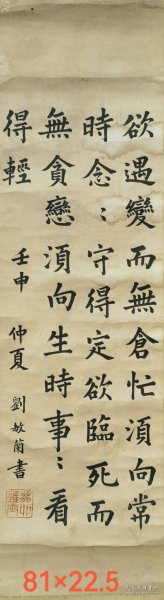 欲遇變而無倉忙須向常
時念：守得定欲臨死而
無貪戀須向生時事：看
得輕
壬申 仲夏 劉敏蘭書
81×22.5